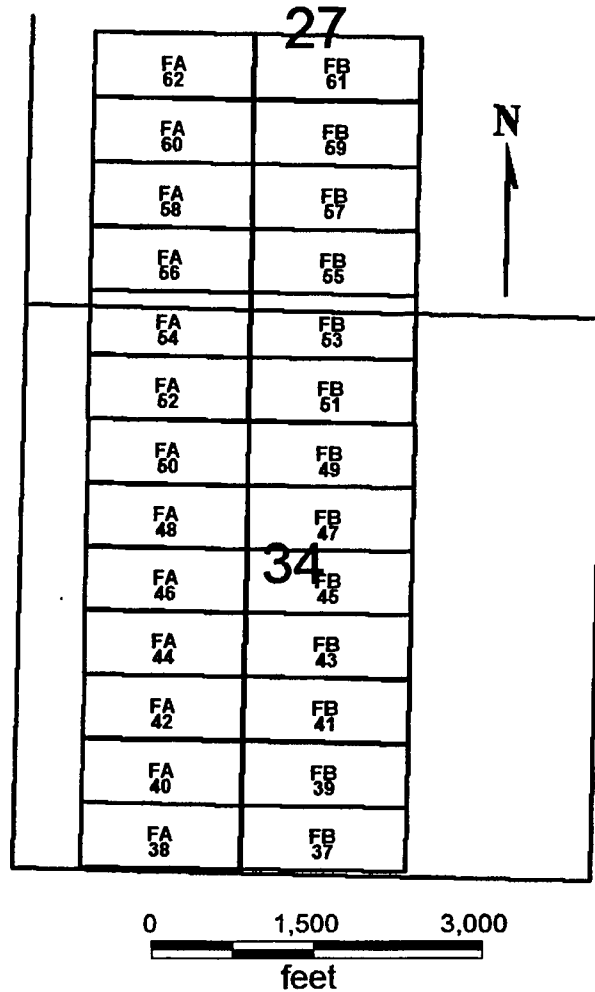 27
FA
62
FB
61
N
FA
60
FB
59
FA
58
FB
57
FA
56
FB
55
FA
54
FB
53
FA
52
FB
51
FA
50
FB
49
FA
48
FB
47
34
FA
46
FB
45
FA
44
FB
43
FA
42
FB
41
FA
40
FB
39
FA
38
FB
37
0 1,500 3,000
feet